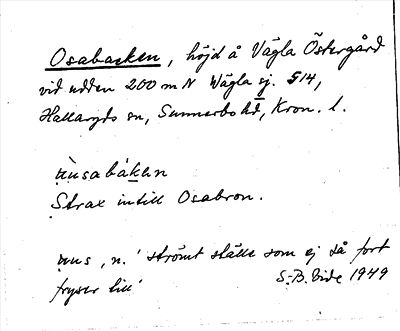 Osabacken, höjd å Vägla Östergård
vid udden 200 m N Vägla sj. S14,
Hallaryds sn, Sunnerbo hd, Kron. l.
ùusabákkən
Strax intill Osabron.
uus, n. 'strömt ställe som ej så fort
fryser till'
S-B. Vide 1949